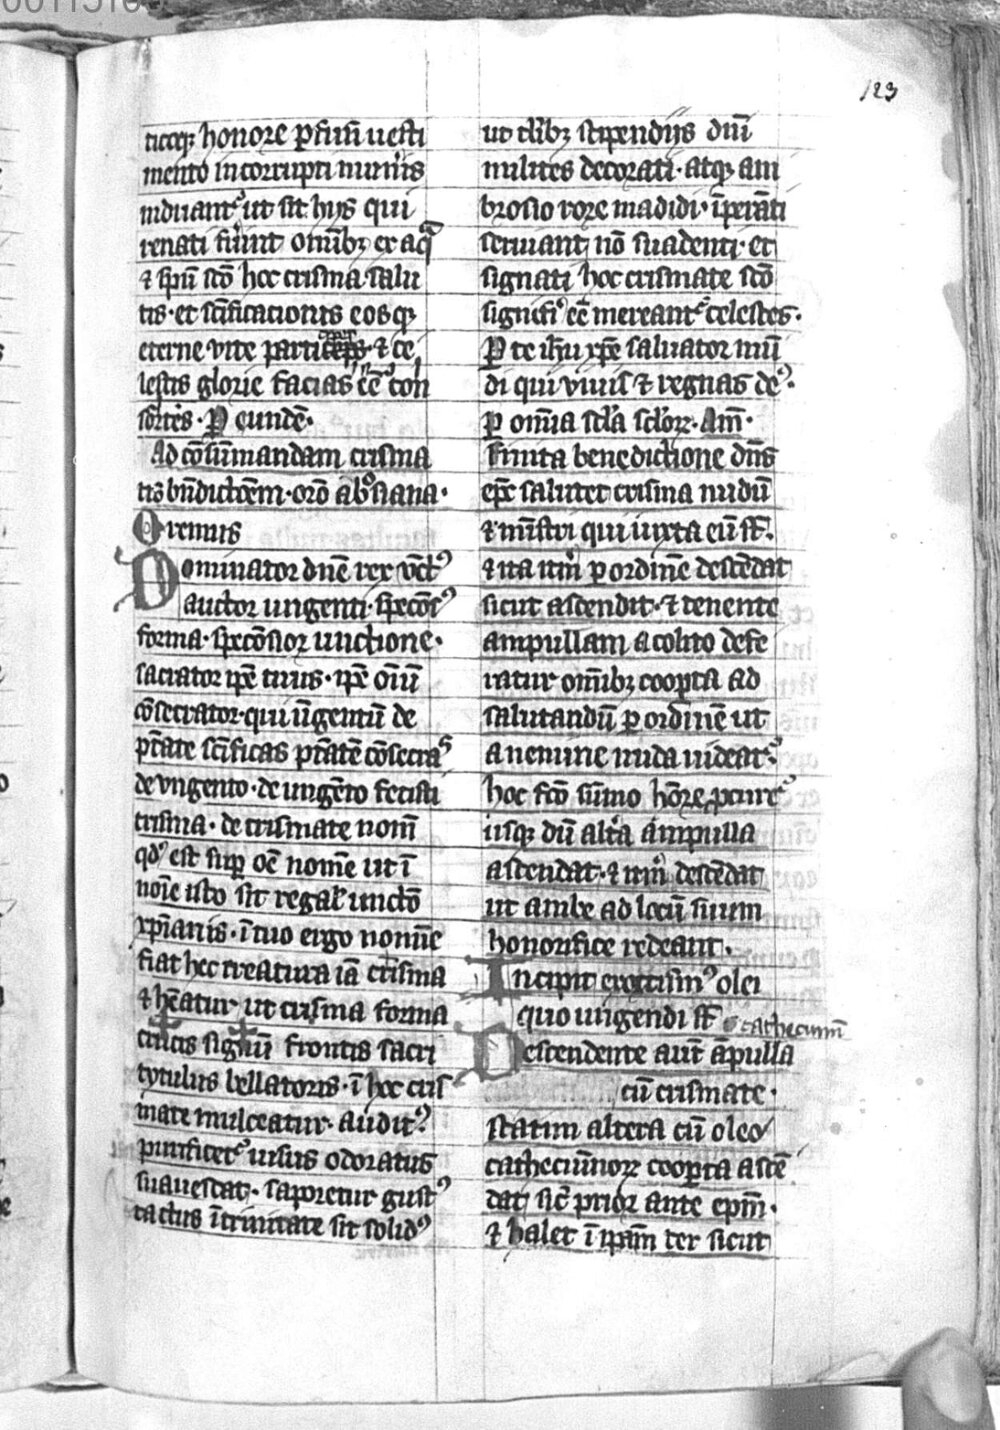 123
ticoq; honore ꝑfusū uesti
mento incorrupti muneris
induantᷣ ut sit hijs qui
renati fuerint omībꝫ ex aqᷓ
⁊ spū scō hoc crisma salu
tis· et scīficationis eosqꝫ
eterne vite participes· ⁊ ce
lestis glorie facias eē con
sortes· P eundē·
Ad cōsūmandam crisma
tis bn̄dictōem· orō abrosiana·
Oremus
Dominator dn̄e rex
auctor ungenti· specōsꝰ
forma· specōsior unctione·
sacrator ip̄e tuus· ip̄e oīū
cōsecrator· qui ūgentū de
pt̄ate scīficas pt̄atē cōsecras
de vngento· de ungēto fecisti
crisma· de crismate nom̄
qđ est suꝑ oē nomē ut ī
noīe isto sit regał unctō
xp̄ianis· ī tuo ergo nomīe
fiat hec creatura iā crisma
⁊ hēatur ut crisma forma
crucis signū frontis sacri
tytulus bellatoris· ī hoc cris
mate mulceatur· auditꝰ
purificetᷣ uisus odoratus
suauescat· saporetur gustꝰ
tactus ī trinitate sit solidꝰ
ut talibꝫ stipendijs diuī
milites decorati· atqꝫ am
brosio rore madidi· īperāti
seruiant nō suadenti· et
signati hoc crismate scō
signiferi eē mereantᷣ celestes·
P te ihū xp̄e saluator mū
di qui viuis ⁊ regnas deꝰ·
ꝑ omīa scła scłoꝝ· Am̄·
Finita benedictione dn̄s
ep̄c salutet crisma nudū
⁊ mīstri qui iuxta eū st̄·
⁊ ita itm̄ ꝑ ordinē descēdat
sicut ascendit· ⁊ tenente
ampullam acolito defe
ratur omībꝫ cooꝑta ad
salutandū ꝑ ordinē ut
a nemine nuda uideatᷣ·
hoc fcō sūmo hōre
usqꝫ dū altera ampulla
ascendat· ⁊ itm̄ descēdat
ut ambe ad locū suum
honorifice redeant·
Incipit exorcismꝰ olei
quo ungendi st̄ cathecumī
Descendente aut̄ āpulla
cū crismate·
statim altera cū oleo
cathecumīnoꝝ cooꝑta ascē
dat sic̄ prior ante ep̄m·
⁊ halet ī ipam̄ ter sicut